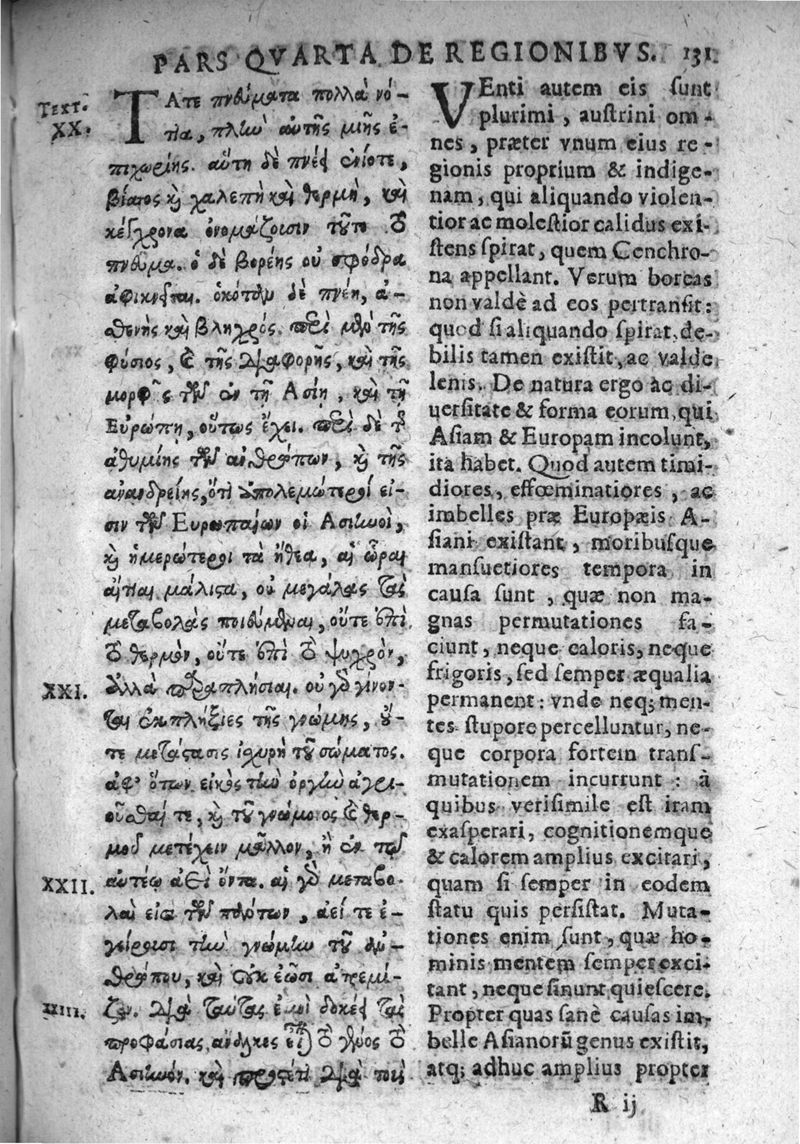 PARS QVARTA DE REGIONIBVS. 131
TEXT.
XX.
ΤΑτε πνεύματα πολλὰ νό-
τια, πλὴν αὐτῆς μιῆς ἐ-
πιχωρίης. αὕτη δὲ πνέει ἐνίοτε,
βίαιος καὶ χαλεπὴ καὶ θερμὴ, καὶ
κέγχρονα ὀνομάζουσιν τοῦτο τὸ
πνεῦμα. ὁ δὲ βορέης οὐ σφόδρα
ἀφικνέεται. ὁκόταν δὲ πνέη, ἀ-
σθενὴς καὶ βληχρός. περὶ μὲν τῆς
φύσιος, καὶ τῆς διαφορῆς, καὶ τῆς
μορφῆς τῶν ἐν τῇ Ἀσίῃ, καὶ τῇ
Εὐρώπῃ, οὕτως ἔχει. περὶ δὲ τῆς
ἀθυμίης τῶν ἀνθρώπων, καὶ τῆς
ἀνανδρείης, ὅτι ἀπολεμώτεροί εἰ-
σιν τῶν Εὐρωπαίων οἱ Ἀσιηνοὶ,
καὶ ἡμερώτεροι τὰ ἤθεα, αἱ ὧραι
αἴτιαι μάλιστα, οὐ μεγάλας τὰς
μεταβολὰς ποιεύμεναι, οὔτε ἐπὶ
τὸ θερμὸν, οὔτε ἐπὶ τὸ ψυχρὸν,
XXI.
ἀλλὰ παραπλήσιαι. οὐ γὰρ γίνον-
ται ἐκπλήξιες τῆς γνώμης, οὔ-
τε μετάστασις ἰσχυρὴ τοῦ σώματος.
ἀφ' ὅτων εἰκὸς τὴν ὀργὴν ἀγρι-
οῦσθαί τε, καὶ τοῦ γνώμονος καὶ θερ-
μοῦ μετέχειν μᾶλλον, ἢ ἐν τῷ
XXII.
αὐτέῳ ἀεὶ ὄντα. αἱ γὰρ μεταβο-
λαί εἰσι τῶν πάντων, αἵ τε ἐ-
γείρουσι τὴν γνώμην τοῦ ἀν-
θρώπου, καὶ οὐκ ἐῶσι ἀτρεμί-
XXIII.
ζειν. διὰ ταύτας ἐμοὶ δοκέει τὰς
προφάσιας, ἄναλκες εἶναι τὸ γένος τὸ
Ἀσιηνόν. καὶ προσέτι διὰ τοὺς
VEnti autem eis sunt
plurimi, austrini om-
nes, præter vnum eius re-
gionis proprium & indige-
nam, qui aliquando violen-
tior ac molestior calidus exi-
stens spirat, quem Cenchro-
na appellant. Verum boreas
non valdè ad eos pertransit:
quod si aliquando spirat, de-
bilis tamen existit, ac valde
lenis. De natura ergo ac di-
uersitate & forma eorum, qui
Asiam & Europam incolunt,
ita habet. Quod autem timi-
diores, effœminatiores, ac
imbelles præ Europæis A-
siani existant, moribusque
mansuetiores tempora in
causa sunt, quæ non ma-
gnas permutationes fa-
ciunt, neque caloris, neque
frigoris, sed semper æqualia
permanent: vnde neq; men-
tes stupore percelluntur, ne-
que corpora fortem trans-
mutationem incurrunt: à
quibus verisimile est iram
exasperari, cognitionemque
& calorem amplius excitari,
quam si semper in eodem
statu quis persistat. Muta-
tiones enim sunt, quæ ho-
minis mentem semper exci-
tant, neque sinunt quiescere.
Propter quas sanè causas im-
belle Asianorũ genus existit,
atq; adhuc amplius propter
R ij